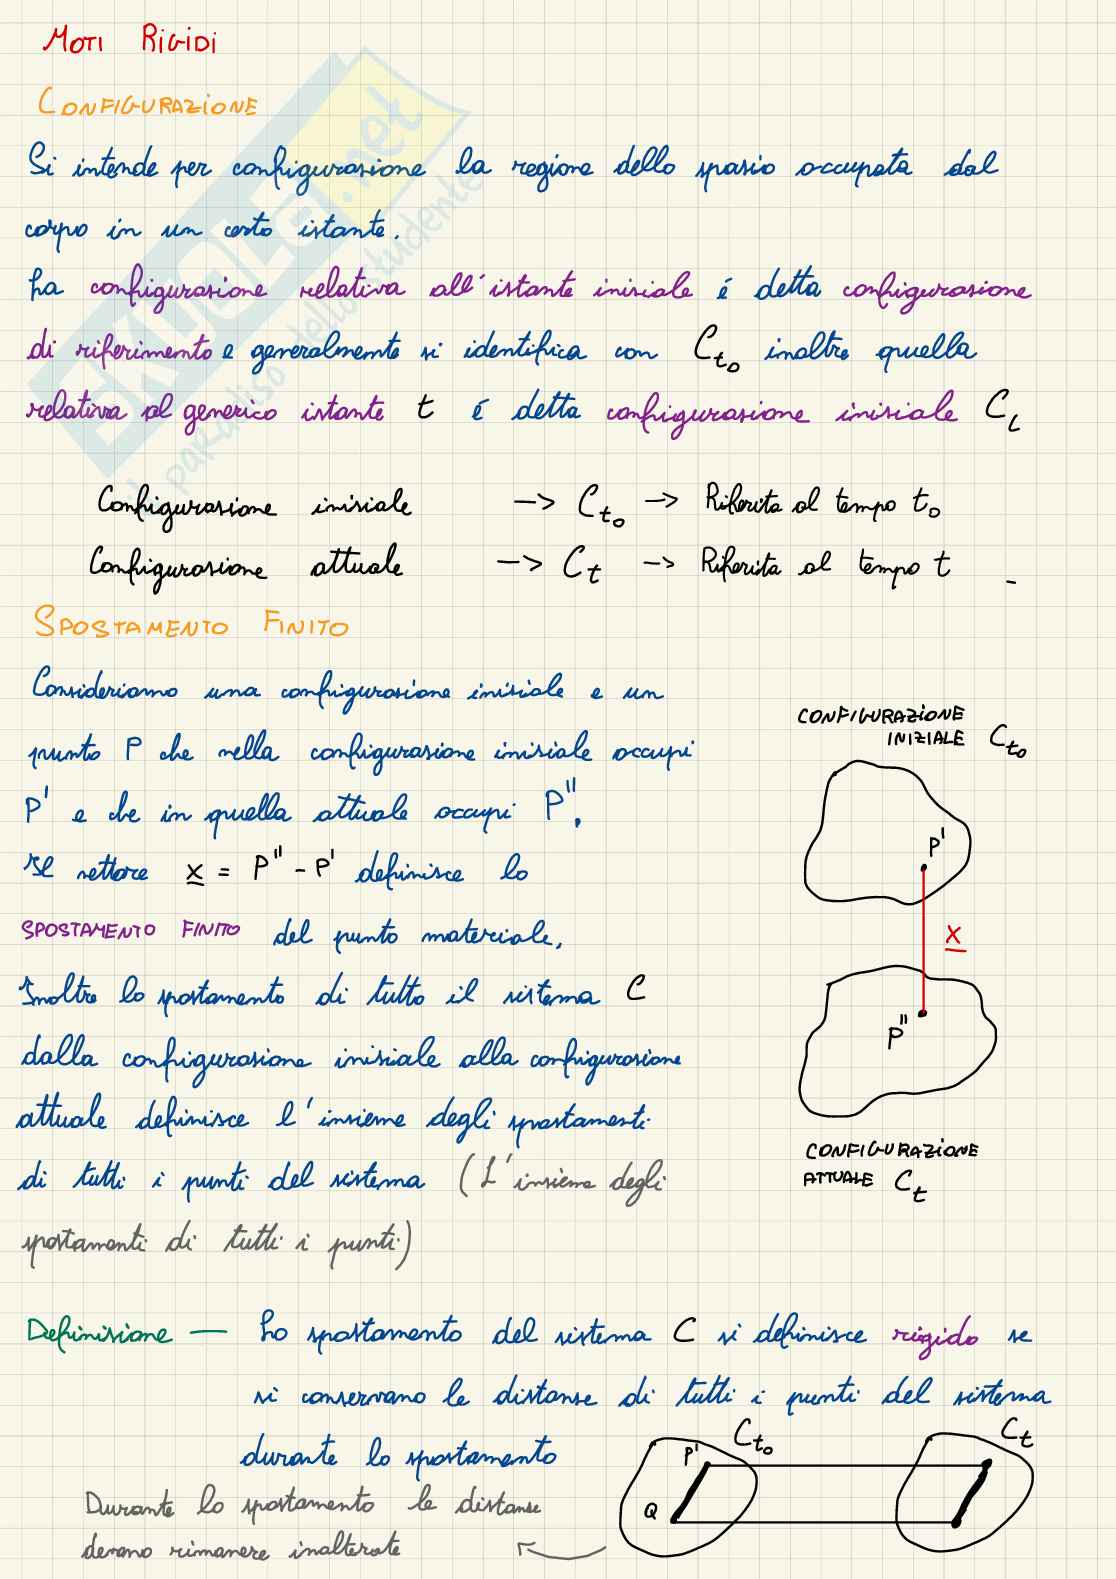 MOTI RIGIDI
CONFIGURAZIONE
Si intende per configurazione la regione dello spazio occupata dal
corpo in un certo istante.
La configurazione relativa all'istante iniziale é detta configurazione
di riferimento e generalmente si identifica con Ct₀ inoltre quella
relativa al generico istante t é detta configurazione iniziale Ci
Configurazione iniziale -> Ct₀ -> Riferita al tempo t₀
Configurazione attuale -> Ct -> Riferita al tempo t
SPOSTAMENTO FINITO
Consideriamo una configurazione iniziale e un
punto P che nella configurazione iniziale occupi
P' e che in quella attuale occupi P".
Il vettore x = P" - P' definisce lo
SPOSTAMENTO FINITO del punto materiale,
Inoltre lo spostamento di tutto il sistema C
dalla configurazione iniziale alla configurazione
attuale definisce l'insieme degli spostamenti
di tutti i punti del sistema (L'insieme degli
spostamenti di tutti i punti)
CONFIGURAZIONE
INIZIALE Ct₀
P'
x
P"
CONFIGURAZIONE
ATTUALE Ct
Definizione — Lo spostamento del sistema C si definisce rigido se
si conservano le distanze di tutti i punti del sistema
durante lo spostamento
Durante lo spostamento le distanze
devono rimanere inalterate
P' Ct₀ Ct
Q
SKUOLA.net
il paradiso dello studente